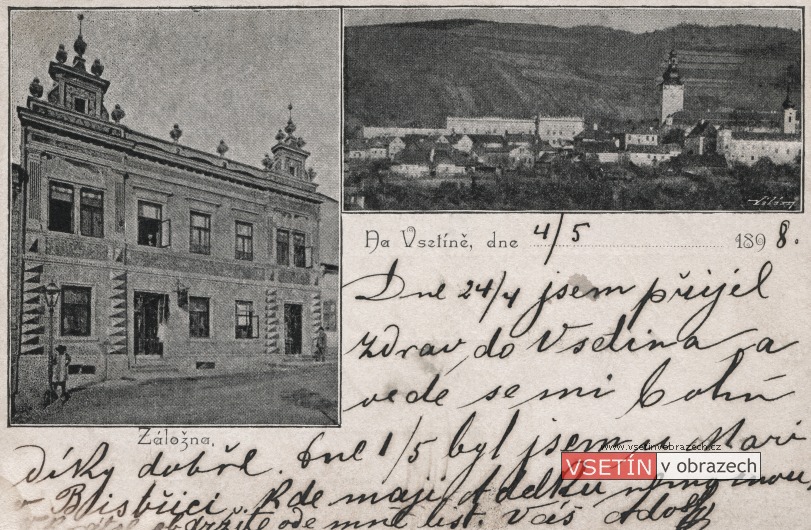 Na Vsetíně, dne 4/5 1898.
Dne 24/4 jsem přijel
zdráv do Vsetína a
vede se mi Bohu
Záložna.
díky dobře. Dne 1/5 byl jsem u
www.vsetinvobrazech.cz
VSETÍN v obrazech
v Bistřici. Kde mají
obdržíte ode mně list. Váš Adolf